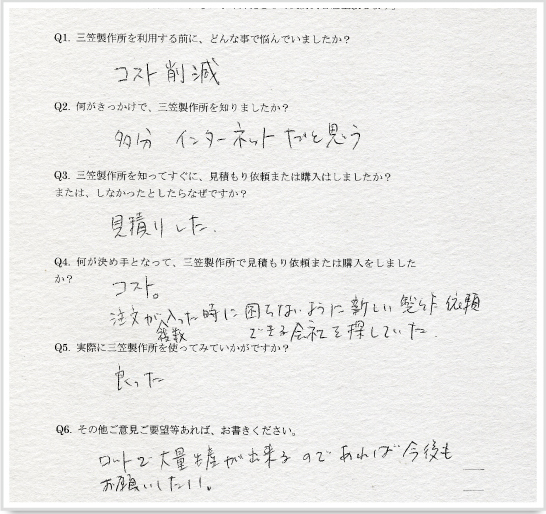 Q1. 三笠製作所を利用する前に、どんな事で悩んでいましたか？
コスト削減
Q2. 何がきっかけで、三笠製作所を知りましたか？
多分 インターネットだと思う
Q3. 三笠製作所を知ってすぐに、見積もり依頼または購入はしましたか？
または、しなかったとしたらなぜですか？
見積りした.
Q4. 何が決め手となって、三笠製作所で見積もり依頼または購入をしました
か？
コスト。
注文が入った時に困らないように新しい製作依頼
複数
できる会社を探していた.
Q5. 実際に三笠製作所を使ってみていかがですか？
良った
Q6. その他ご意見ご要望等あれば、お書きください。
ロットで大量生産が出来るのであれば今後も
お願いしたい。